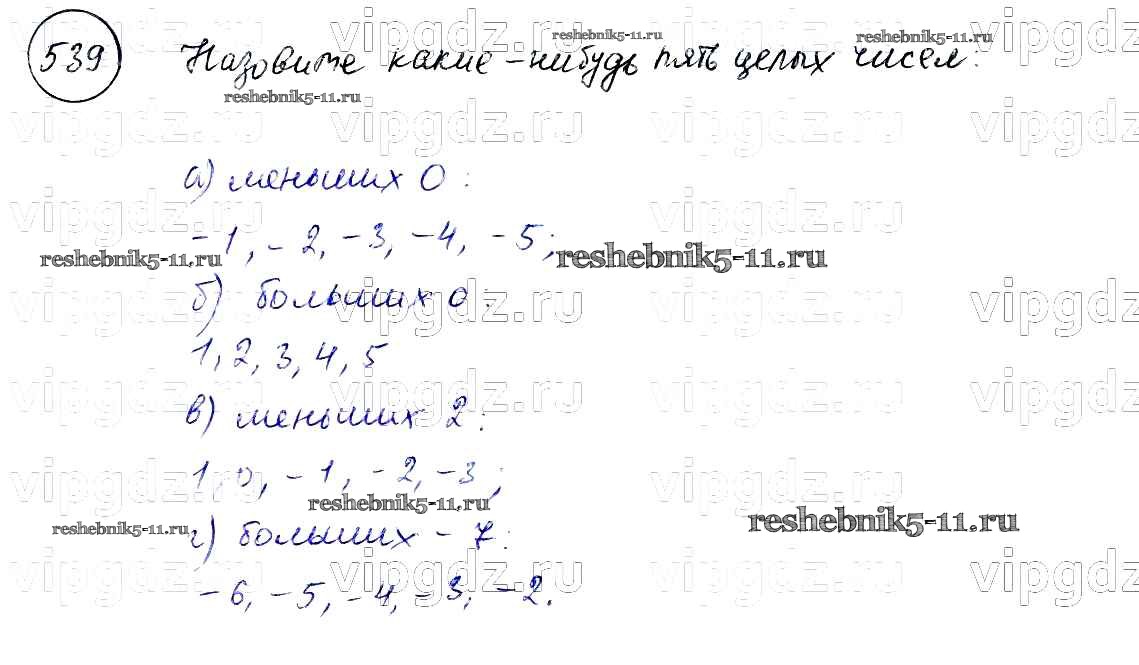 539 Назовите какие-нибудь пять целых чисел:
а) меньших 0:
-1, -2, -3, -4, -5;
б) больших 0:
1, 2, 3, 4, 5
в) меньших 2:
1, 0, -1, -2, -3;
г) больших -7:
-6, -5, -4, -3, -2.
vipgdz.ru
reshebnik5-11.ru